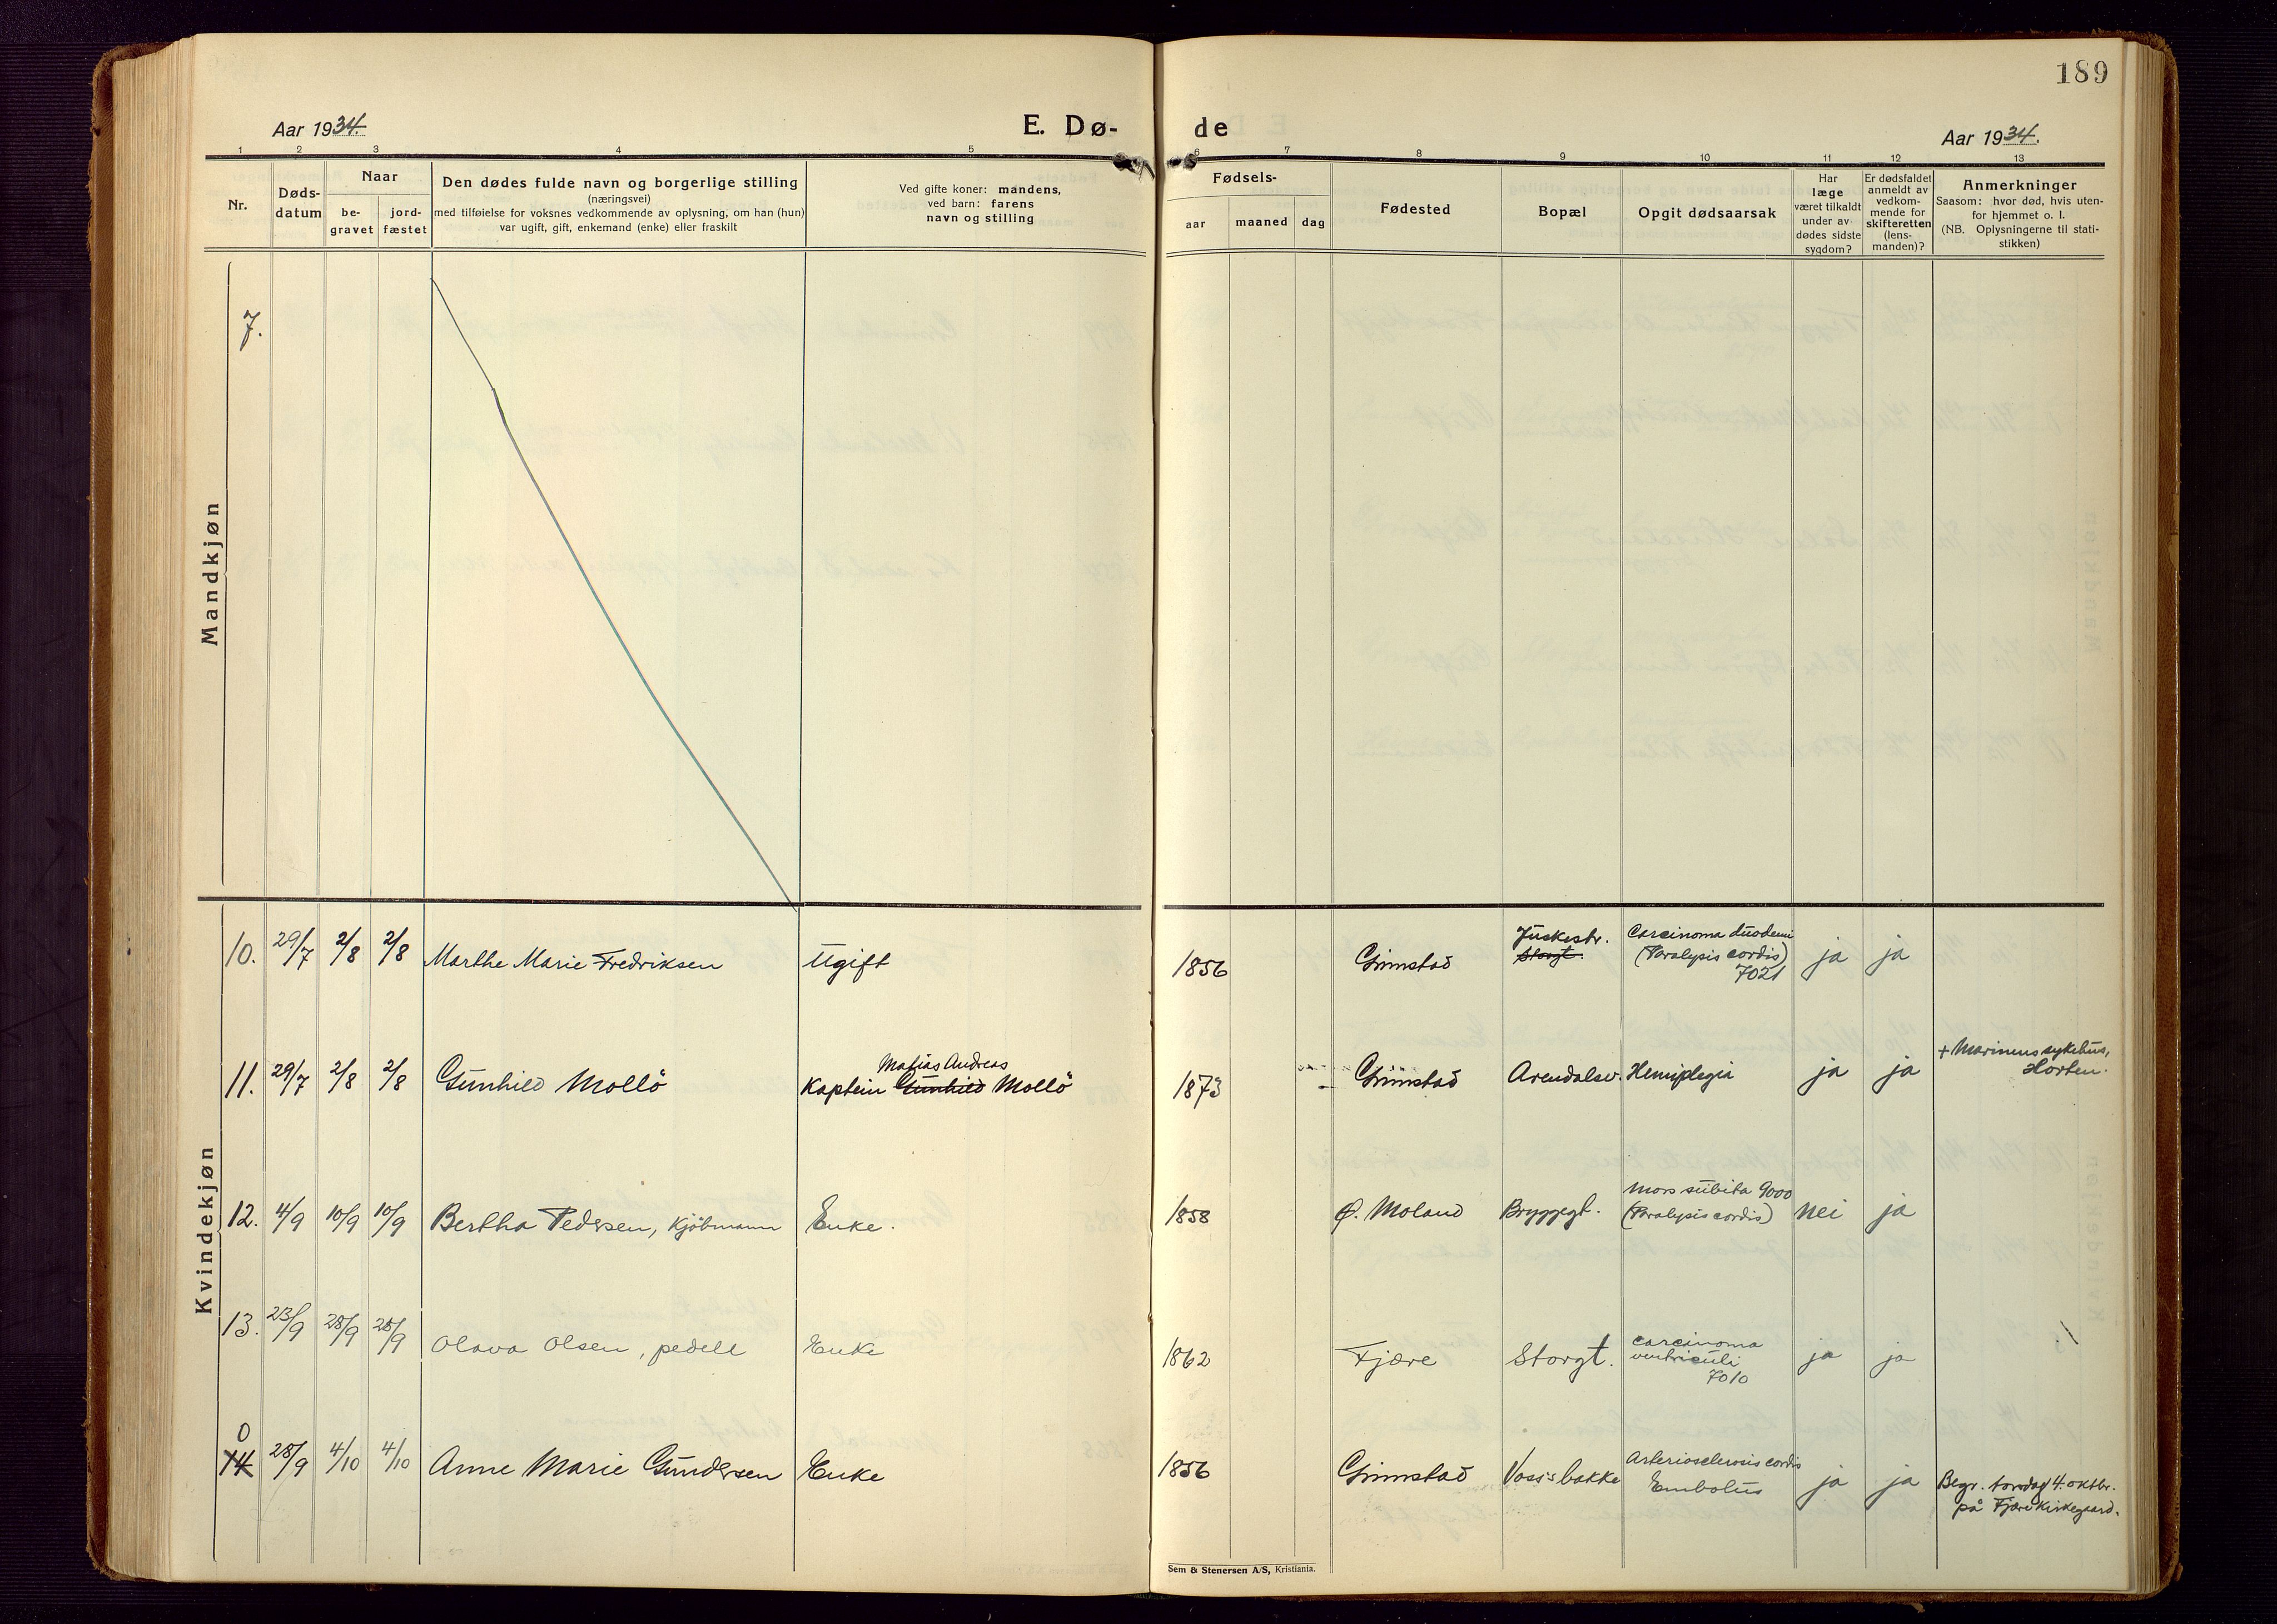 189
Aar 1934.
E. Dø-
de
Aar 1934.
1 2 3 4 5 6 7 8 9 10 11 12 13
Nr.
Døds-
datum
Naar
be-
gravet
jord-
fæstet
Den dødes fulde navn og borgerlige stilling
(næringsvei)
med tilføielse for voksnes vedkommende av oplysning, om han (hun)
var ugift, gift, enkemand (enke) eller fraskilt
Ved gifte koner: mandens,
ved barn: farens
navn og stilling
Fødsels-
aar
maaned
dag
Fødested
Bopæl
Opgit dødsaarsak
Har
læge
været tilkaldt
under av-
dødes sidste
sygdom?
Er dødsfaldet
anmeldt av
vedkom-
mende for
skifteretten
(lens-
manden)?
Anmerkninger
Saasom: hvor død, hvis uten-
for hjemmet o. l.
(NB. Oplysningerne til stati-
stikken)
Mandkjøn
7.
Kvindekjøn
10. 29/7 2/8 2/8 Marthe Marie Fredriksen Ugift 1856 Grimstad
Juskestr.
Storgt.
Carcinoma duodeni
(Paralysis cordis)
7021
ja ja
11. 29/7 2/8 2/8 Gunhild Mollö
Matias Andreas
Kaptein Gunhild Mollö
1873 Grimstad Arendalsv. Hemiplegia ja ja
+ Marinens sykehus,
Horten.
12. 4/9 10/9 10/9 Bertha Pedersen, Kjöbmann Enke. 1858 Ø. Moland Bryggegt.
Mors subita 9000
(Paralysis cordis)
nei ja
13. 23/9 28/9 28/9 Olava Olsen, pedell Enke 1862 Fjære Storgt.
carcinoma
ventriculi
7010
ja ja
0
14 28/9 4/10 4/10 Anne Marie Gundersen Enke 1856 Grimstad Voss's bakke
Arteriosclerosis cordis
Embolus
ja ja
Begr. torsdag 4. oktbr.
på Fjære Kirkegaard.
Sem & Stenersen A/S, Kristiania.